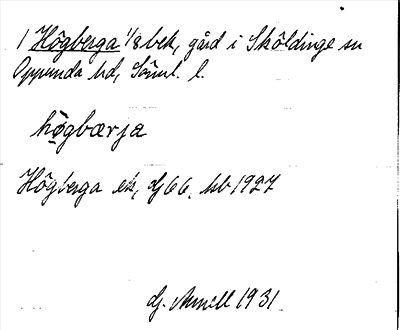 1 Högberga 1/8 bek, gård i Sköldinge sn
Oppunda hd, Söml. l.
högbærja
Högberga ek, Gj 66, hb 1927
G. Arnell 1931